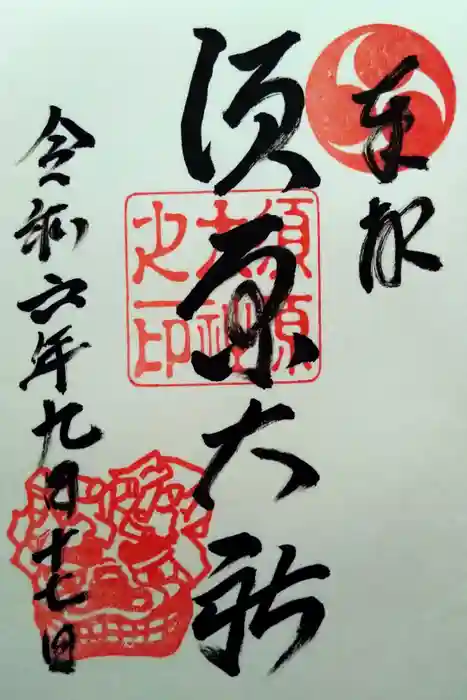 奉拝
須原大神
須原
大神
之印
令和六年九月十七日